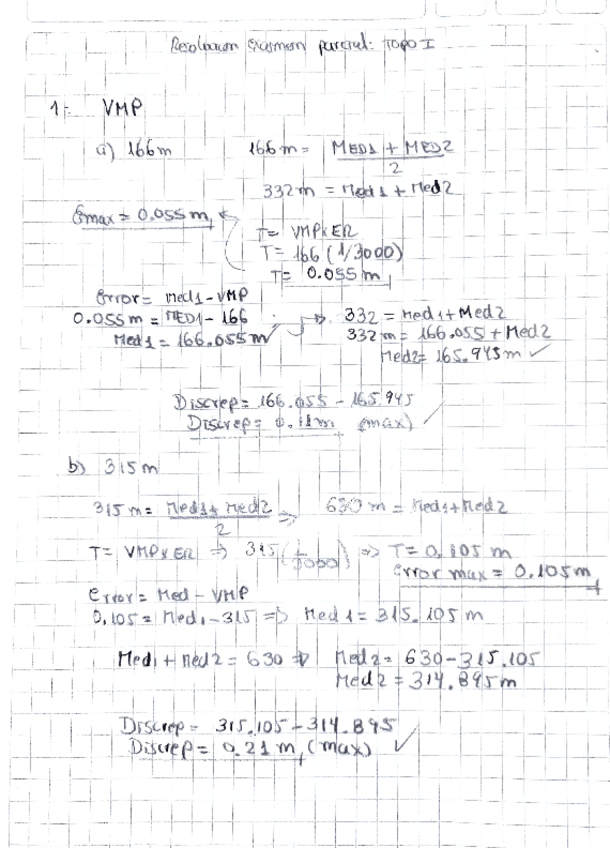 Resolucion examen parcial: Topo I
1- VMP
a) 166m 166m = MED1 + MED2
2
332m = Med1 + Med2
Emax = 0.055m
T= VMPxER
T= 166 (1/3000)
T= 0.055m
Error= Med1-VMP
0.055m = MED1- 166
Med1 = 166.055m
332 = Med1+Med2
332m = 166.055 + Med2
Med2= 165.945m ✓
Discrep= 166.055 - 165.945
Discrep= 0.11m (max) ✓
b) 315m
315m = Med1+ Med2 => 630m = Med1+Med2
2
T= VMPxER => 315 (1/3000) => T= 0,105 m
error max = 0.105m
Error= Med - VMP
0,105= Med1-315 => Med 1= 315.105 m
Med1 + Med2 = 630 => Med2= 630-315.105
Med2 = 314.895m
Discrep= 315.105-314.895
Discrep= 0.21 m, (max) ✓